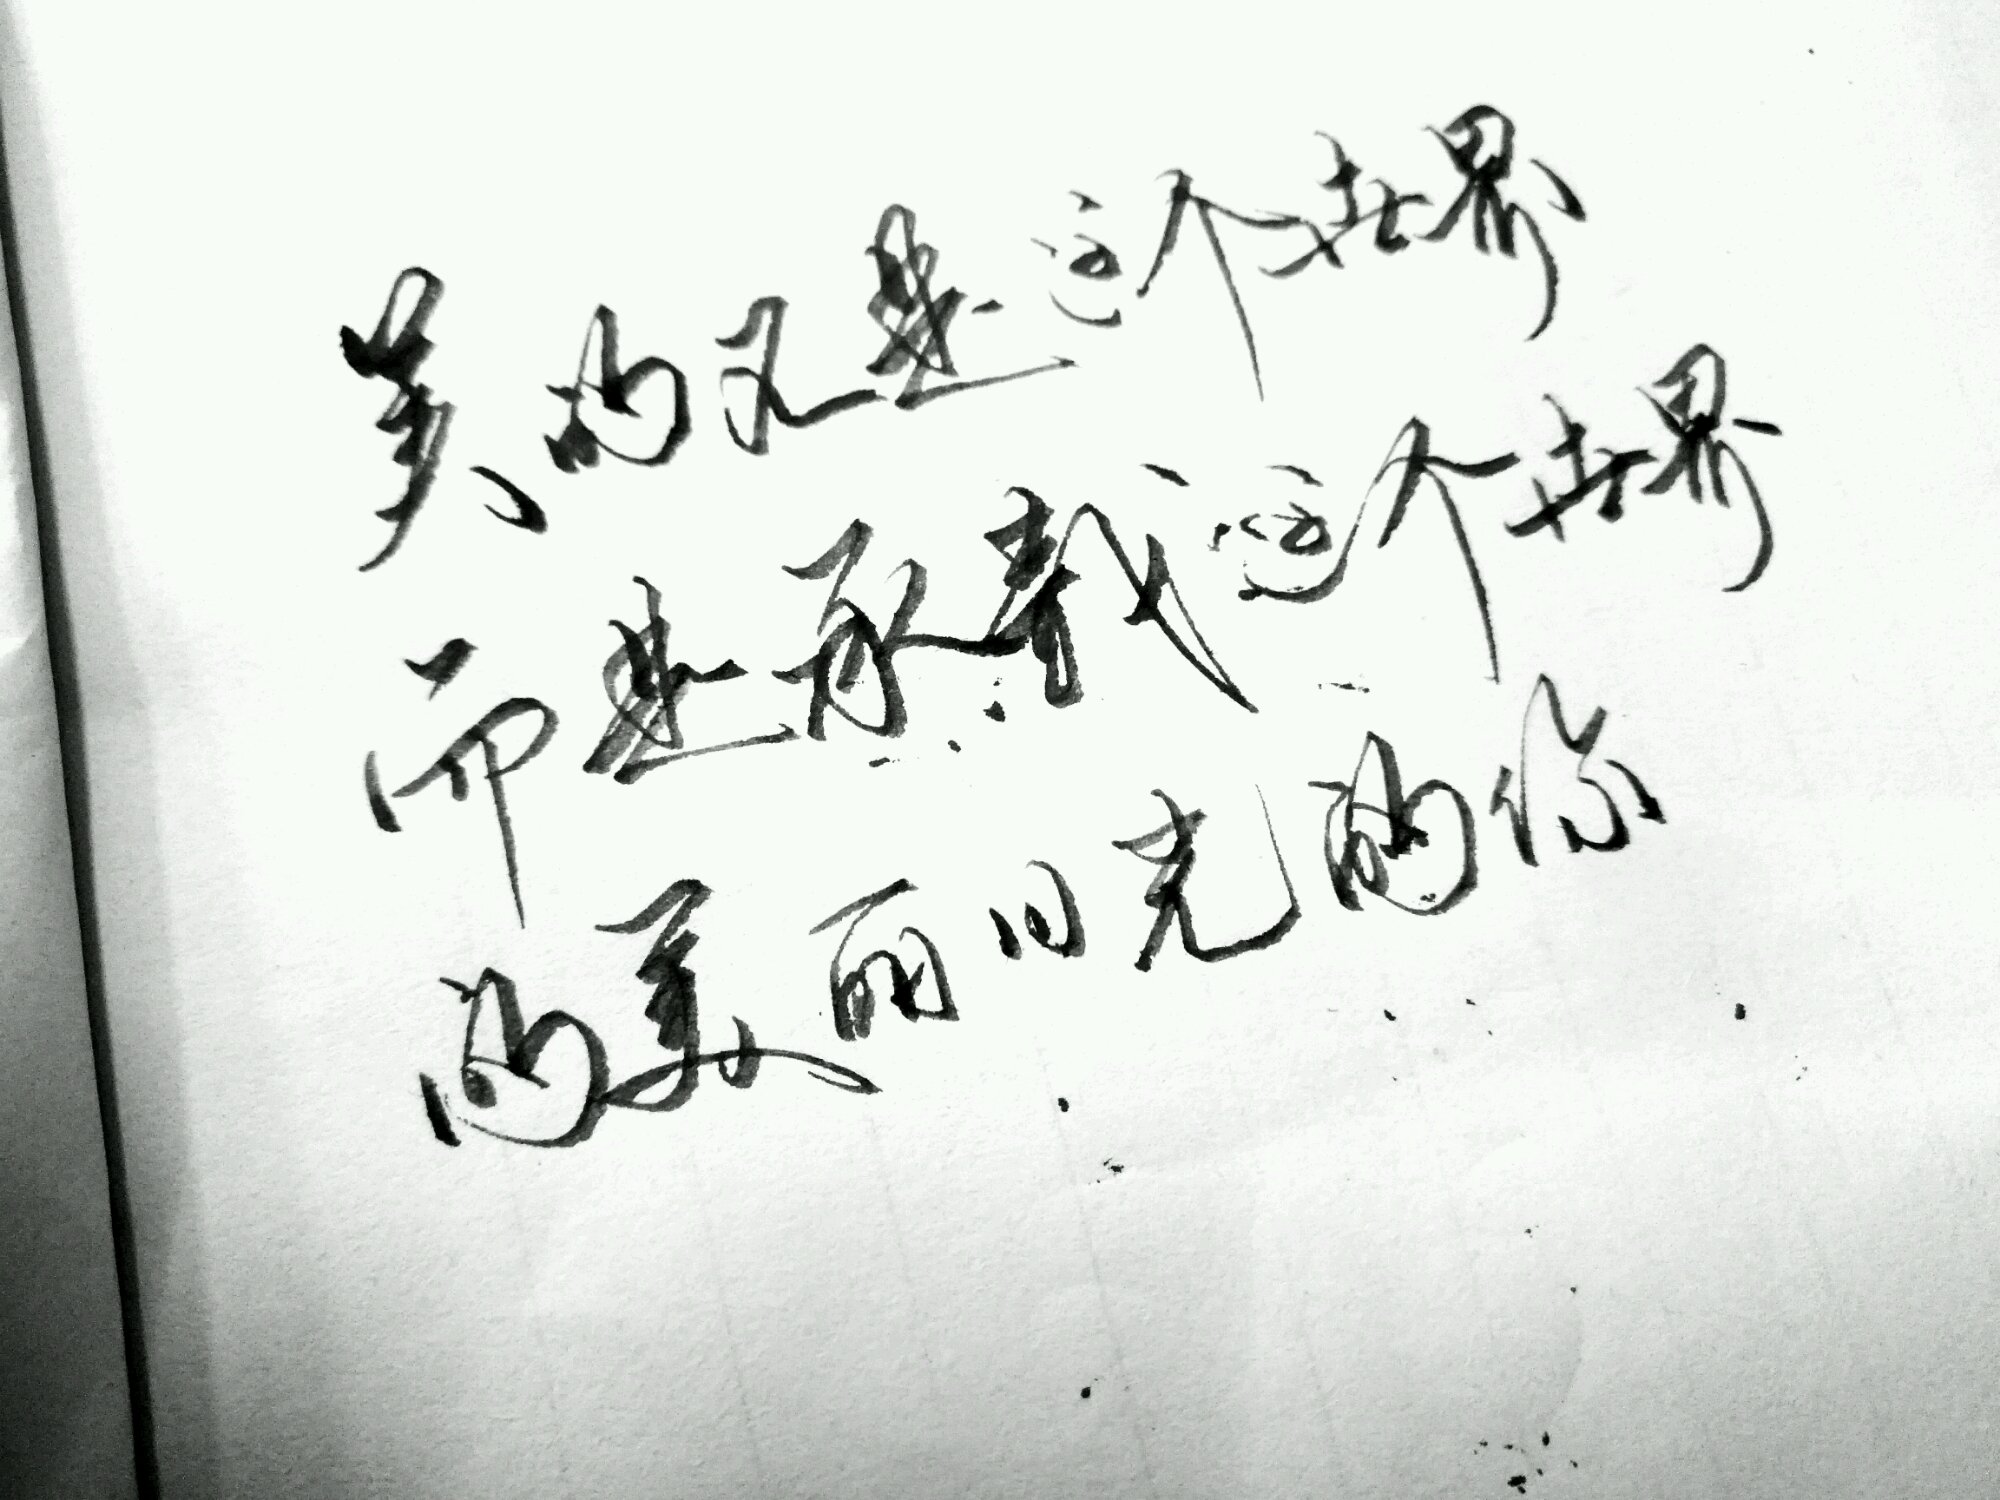 美的不是这个世界
而是承载这个世界
的美丽目光的你